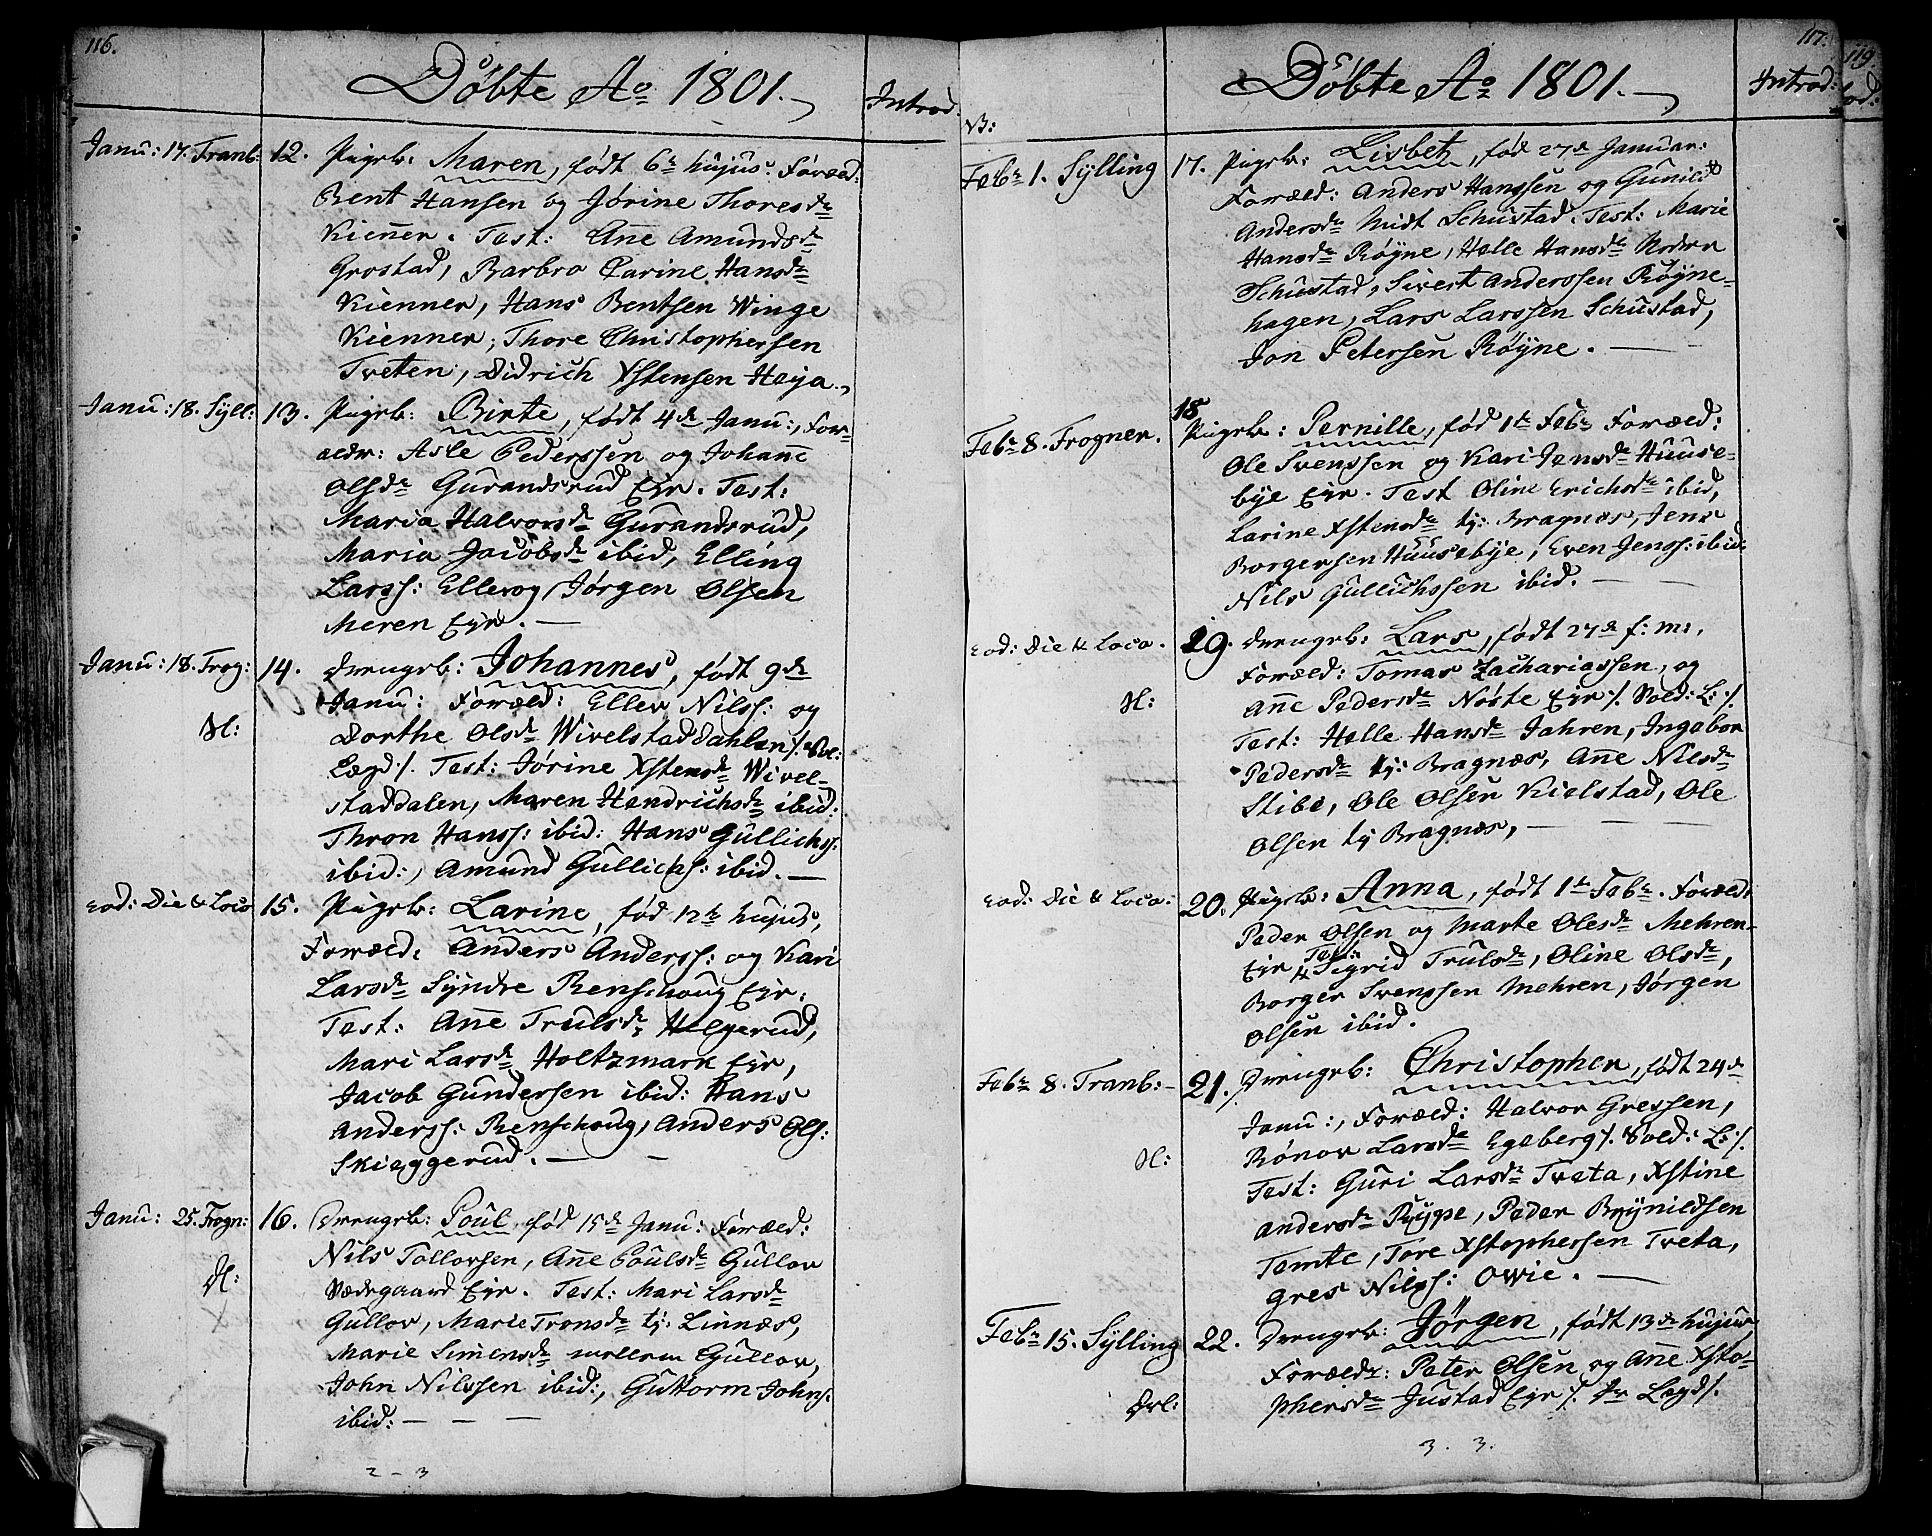 116.
Döbte Ao 1801.
Introd:
Janu: 17. Tranb: 12. Pigeb: Maren, født 6te hujus. Foræld:
Bent Hansen og Jørine Thoresdr
Kienner. Test: Anne Amundsdr
Grostad, Barbro Carine Hansdr
Kienner, Hans Bentsen Winge
Kienner, Thore Christophersen
Tveten, Didrich Xstensen Heja.
Janu: 18. Syll: 13. Pigeb: Birte, født 4de Janu:, For-
ældr: Asle Pederssen og Johanne
Olsdr Gurandsrud Eyr. Test:
Maria Halvorsdr Gurandsrud,
Maria Jacobsdr ibid, Elling
Larss: Ellevog, Jørgen Olsen
Meren Eyr.
Janu: 18. Frog: 14. Drengeb: Johannes, født 9de
Janu: Foræld: Ellev Nilss: og
Dorthe Olsdr Wivelstaddahlen /: Sol:
Lægd :/. Test: Jørine Xstensdr Wivel-
staddalen, Maren Hendrichsdr ibid:
Thron Hanss: ibid: Hans Gullichs:
ibid:, Amund Gullichs: ibid.
eod: Die & Loco 15. Pigeb: Larine, fød 12te hujus,
Foræld: Anders Anderss: og Kari
Larsdr Syndre Renschoug Eyr.
Test: Anne Trulsdr Helgerud,
Mari Larsdr Holtzmark Eyr,
Jacob Gundersen ibid: Hans
Anderss: Renschoug, Anders Ols:
Skieggerud.
Janu: 25. Frogn: 16. Drengeb: Poul, fød 15de Janu: Foræld:
Nils Tollovsen, Anne Poulsdr Gullov
Ødegaard Eyr. Test: Mari Larsdr
Gullov, Marie Tronsdr tj: Linnæs,
Marie Simensdr mellem Gullov,
John Nilssen ibid:, Guttorm Johns:
ibid:
2 - 3
117.
Döbte Ao 1801.
Introd:
119.
od:
Febr 1. Sylling 17. Pigeb: Lisbet, fød 27de Januar:
Foræld: Anders Hanssen og Gunild
Andersdr Midt Schustad. Test: Marie
Hansdr Røyne, Helle Hansdr Nedre
Schustad, Sivert Anderssen Røyne-
hagen, Lars Larssen Schustad,
Jon Petersen Røyne.
Febr 8. Frogner. 18 Pigeb: Pernille, fød 1te Febr Foræld:
Ole Svenssen og Kari Jensdr Huuse-
bye Eyr. Test Oline Erichsdr ibid,
Larine Xstensdr tj: Bragnæs, Jens
Borgersen Huusebye, Even Jenss: ibid:
Nils Gullichssen ibid.
eod: Die & Loco. 19. Drengeb: Lars, født 27de f: m:,
Foræld: Tomas Zachariassen, og
Anne Pedersdr Nøste Eyr /: Sold: L: :/.
Test: Helle Hansdr Jahren, Ingebor
Pedersdr tj: Bragnæs, Anne Nilsdr
Stibe, Ole Olsen Kielstad, Ole
Olsen tj Bragnæs,
eod: Die & Loco: 20. Pigeb: Anna, født 1te Febr. Foræld:
Peder Olsen og Marte Olesdr Mehren-
Eyr Test: Sigrid Trulsdr, Oline Olsdr,
Borger Svenssen Mehren, Jørgen
Olsen ibid.
Febr 8. Tranb: 21. Drengeb: Christopher, født 24de
Janu:, Foræld: Halvor Gressen,
Rønov Larsdr Egeberg /: Sold: L: :/.
Test: Guri Larsdr Tveta, Xstine
Andersdr Rype, Peder Brynildsen
Temte, Tore Xstophersen Tveta,
Gres Nilss: Owie.
Febr 15. Sylling 22. Drengeb: Jørgen, født 13de hujus
Foræld: Peter Olsen og Anne Xsto-
phersdr Justad Eyr /: Dr Legd :/.
3. 3.